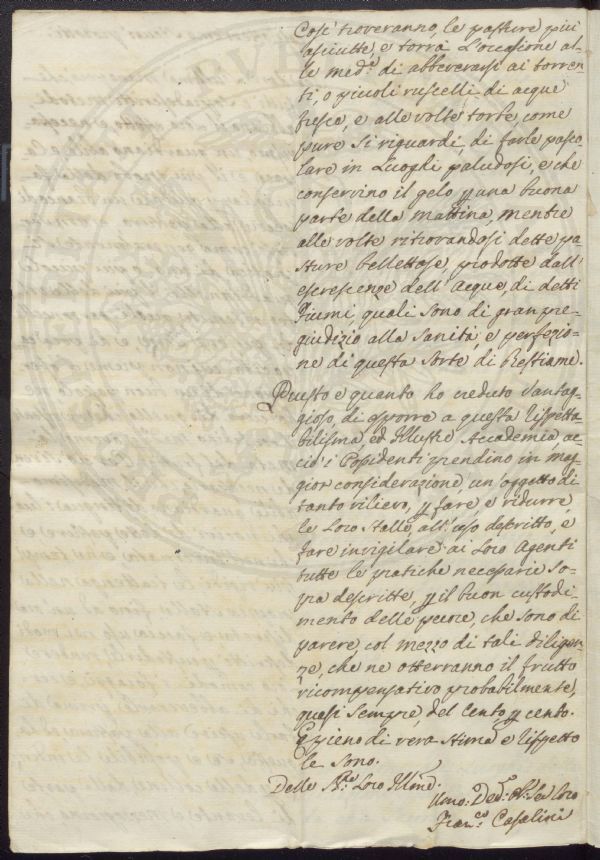 Così troveranno, le pasture più
asciutte, e torrà l'occasione al-
le med.e di abbeverarsi ai torren-
ti, o piccoli ruscelli di acque
fresca, e alle volte torbe, come
pure si riguardi, di farle pasco-
lare in Luoghi paludosi, e che
conservino il gelo p una buona
parte della mattina, mentre
alle volte ritrovandosi dette pa-
sture bellettose, prodotte dall'
escrescenze dell' acque, di detti
Fiumi, quali sono di gran pre-
giudizio alla sanità, e perfezio-
ne di questa sorte di Bestiame.
Questo e quanto ho creduto vantag-
gioso, di esporre a questa Rispetta-
bilissima, ed Illustre Accademia, ac-
ciò i Possidenti prendino in mag-
gior considerazione, un oggetto di
tanto rilievo, p fare, e ridurre,
le Loro Stalle all' uso descritto, e
fare invigilare ai Loro Agenti
tutte le pratiche necessarie so-
pra descritte, p il buon custodi-
mento delle pecore, che sono di
parere, col mezzo di tali diligen-
ze, che ne otterranno il frutto
ricompensativo probabilmente,
quasi sempre, del Cento p cento.
E pieno di vera stima e Rispetto
le sono.
Delle Loro Illme.
Umo. Servo loro
Fran.co Casalini